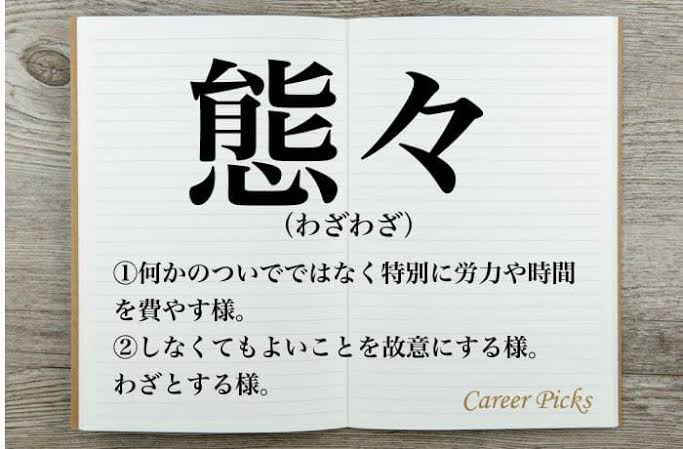 態々
（わざわざ）
①何かのついでではなく特別に労力や時間
を費やす様。
②しなくてもよいことを故意にする様。
わざとする様。
Career Picks